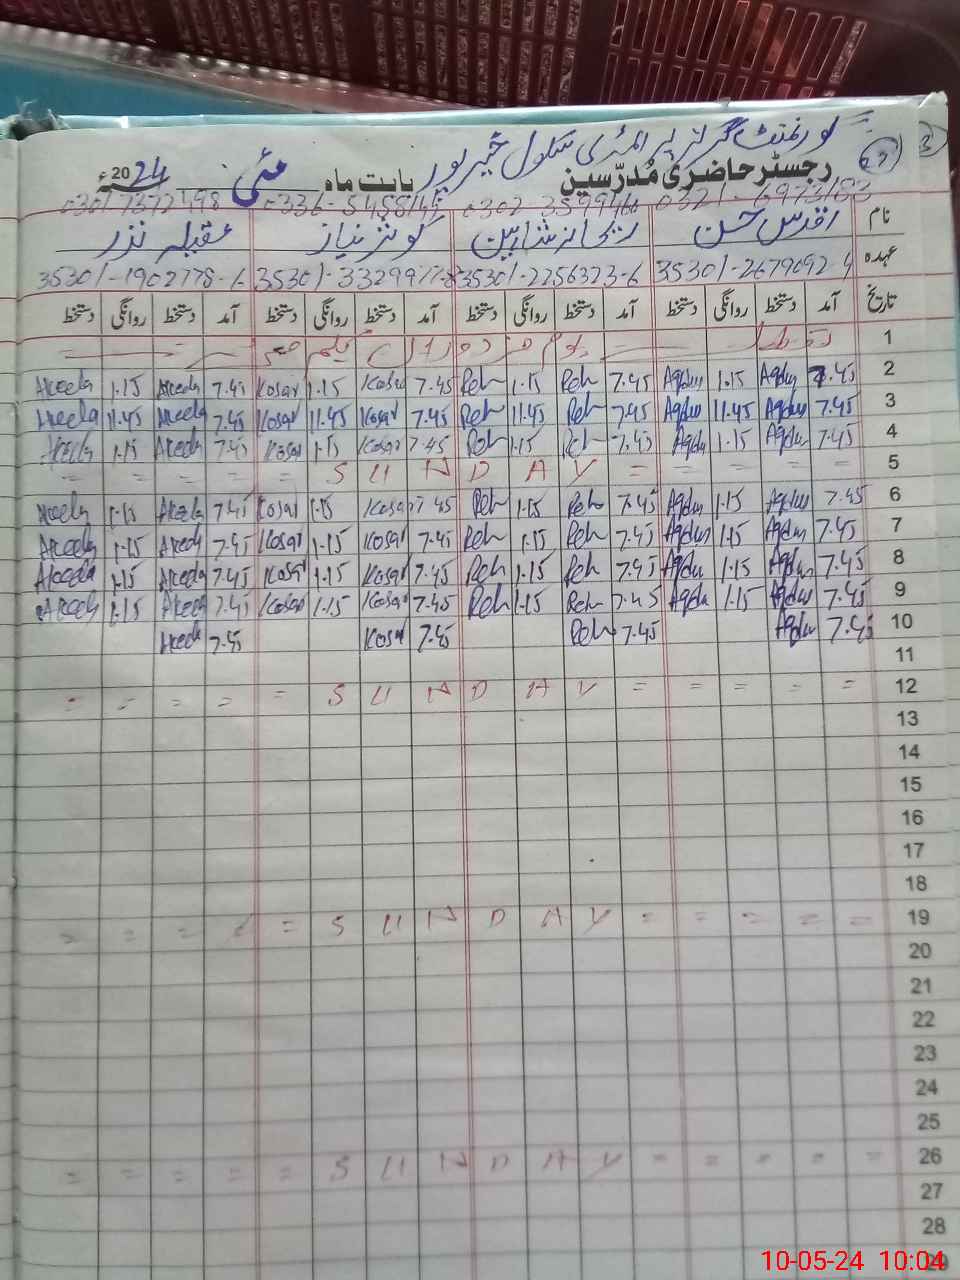 گورنمنٹ گرلز پرائمری سکول خیرپور
رجسٹر حاضری مُدرّسین بابت ماہ مئی 2024ء
0321-6973183 0302-3599460 0336-5458145 03017572498
نام اقدس حسن ریحانہ شاہین کوثر نیاز عقیلہ نذر
عہدہ 35301-2679092 35301-2256323-6 35301-3329977-8 35301-1902778-6
تاریخ آمد دستخط روانگی دستخط آمد دستخط روانگی دستخط آمد دستخط روانگی دستخط آمد دستخط روانگی دستخط
1 یوم مزدوراں
Akeela 1.15 Akeela 7.45 Kosar 1.15 Kosar 7.45 Reh 1.15 Reh 7.45 Aqdus 1.15 Aqdus 7.45 2
Akeela 11.45 Akeela 7.45 Kosar 11.45 Kosar 7.45 Reh 11.45 Reh 7.45 Aqdus 11.45 Aqdus 7.45 3
Akeela 1.15 Akeela 7.45 Kosar 1.15 Kosar 7.45 Reh 1.15 Reh 7.45 Aqdus 1.15 Aqdus 7.45 4
= = = = = S U N D A Y = = = = = 5
Akeela 1.15 Akeela 7.45 Kosar 1.15 Kosar 7.45 Reh 1.15 Reh 7.45 Aqdus 1.15 Aqdus 7.45 6
Akeela 1.15 Akeela 7.45 Kosar 1.15 Kosar 7.45 Reh 1.15 Reh 7.45 Aqdus 1.15 Aqdus 7.45 7
Akeela 1.15 Akeela 7.45 Kosar 1.15 Kosar 7.45 Reh 1.15 Reh 7.45 Aqdus 1.15 Aqdus 7.45 8
Akeela 1.15 Akeela 7.45 Kosar 1.15 Kosar 7.45 Reh 1.15 Reh 7.45 Aqdus 1.15 Aqdus 7.45 9
Akeela 7.45 Kosar 7.45 Reh 7.45 Aqdus 7.45 10
11
= = = = = S U N D A Y = = = = = 12
13
14
15
16
17
18
= = = = = S U N D A Y = = = = = 19
20
21
22
23
24
25
= = = = = S U N D A Y = = = = = 26
27
28
29
10-05-24 10:04